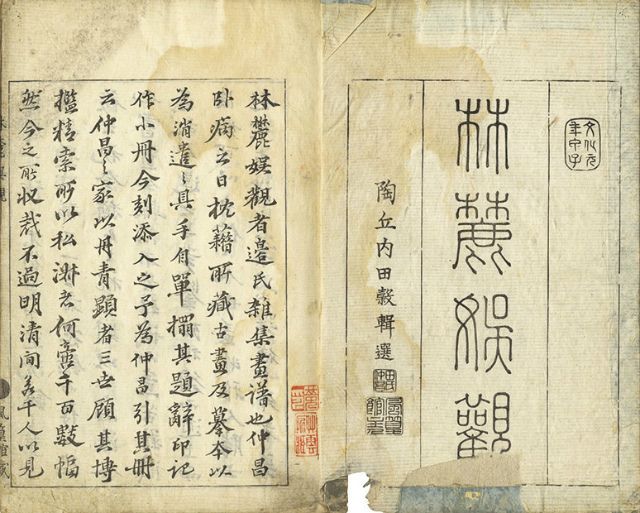 文化元
年甲子
林麓娯觀
陶丘內田㲄輯選
林麓娯觀者邉氏雜集畫譜也仲昌
卧病之日枕藉所藏古畫及摹本以
為消遣之具手自單搨其題辭印記
作小冊今刻添入之予為仲昌引其冊
云仲昌之家以丹青顯者三世顧其博
搜精索所以私淋者何啻千百數幅
然今之所收裁不過明清间若千人以見